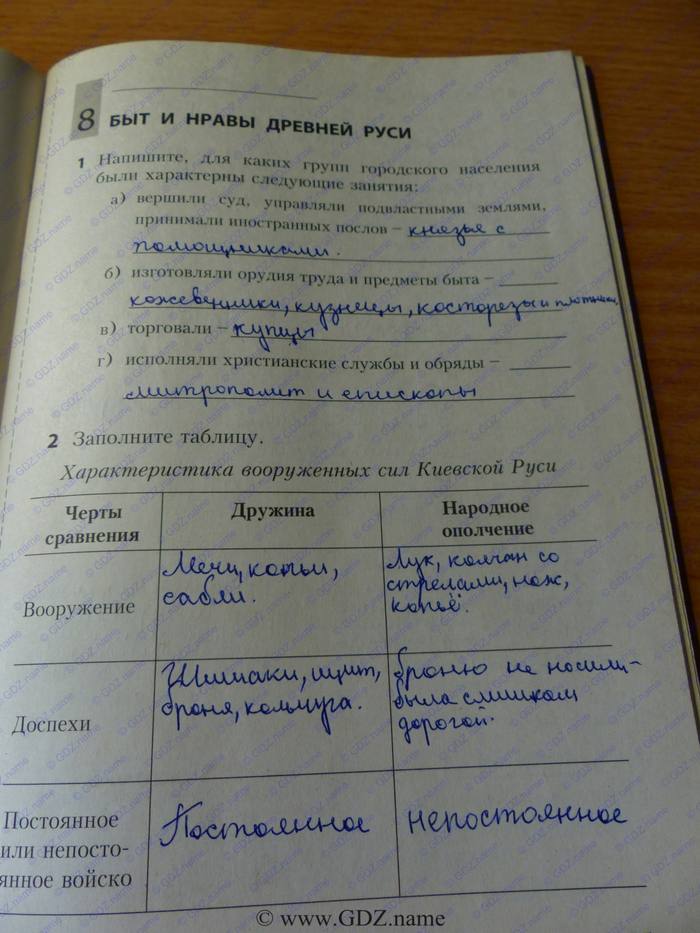 8 БЫТ И НРАВЫ ДРЕВНЕЙ РУСИ
1 Напишите, для каких групп городского населения
были характерны следующие занятия:
а) вершили суд, управляли подвластными землями,
принимали иностранных послов – князья с
помощниками.
б) изготовляли орудия труда и предметы быта –
кожевенники, кузнецы, косторезы и плотники.
в) торговали – купцы
г) исполняли христианские службы и обряды –
митрополит и епископы
2 Заполните таблицу.
Характеристика вооруженных сил Киевской Руси
Черты сравнения
Дружина
Народное ополчение
Вооружение
Мечи, копьи,
сабли.
Лук, колчан со
стрелами, нож,
копьё.
Доспехи
Шишаки, щит,
броня, кольчуга.
броню не носили-
была слишком
дорогой.
Постоянное
или непосто-
янное войско
Постоянное
непостоянное
© www.GDZ.name